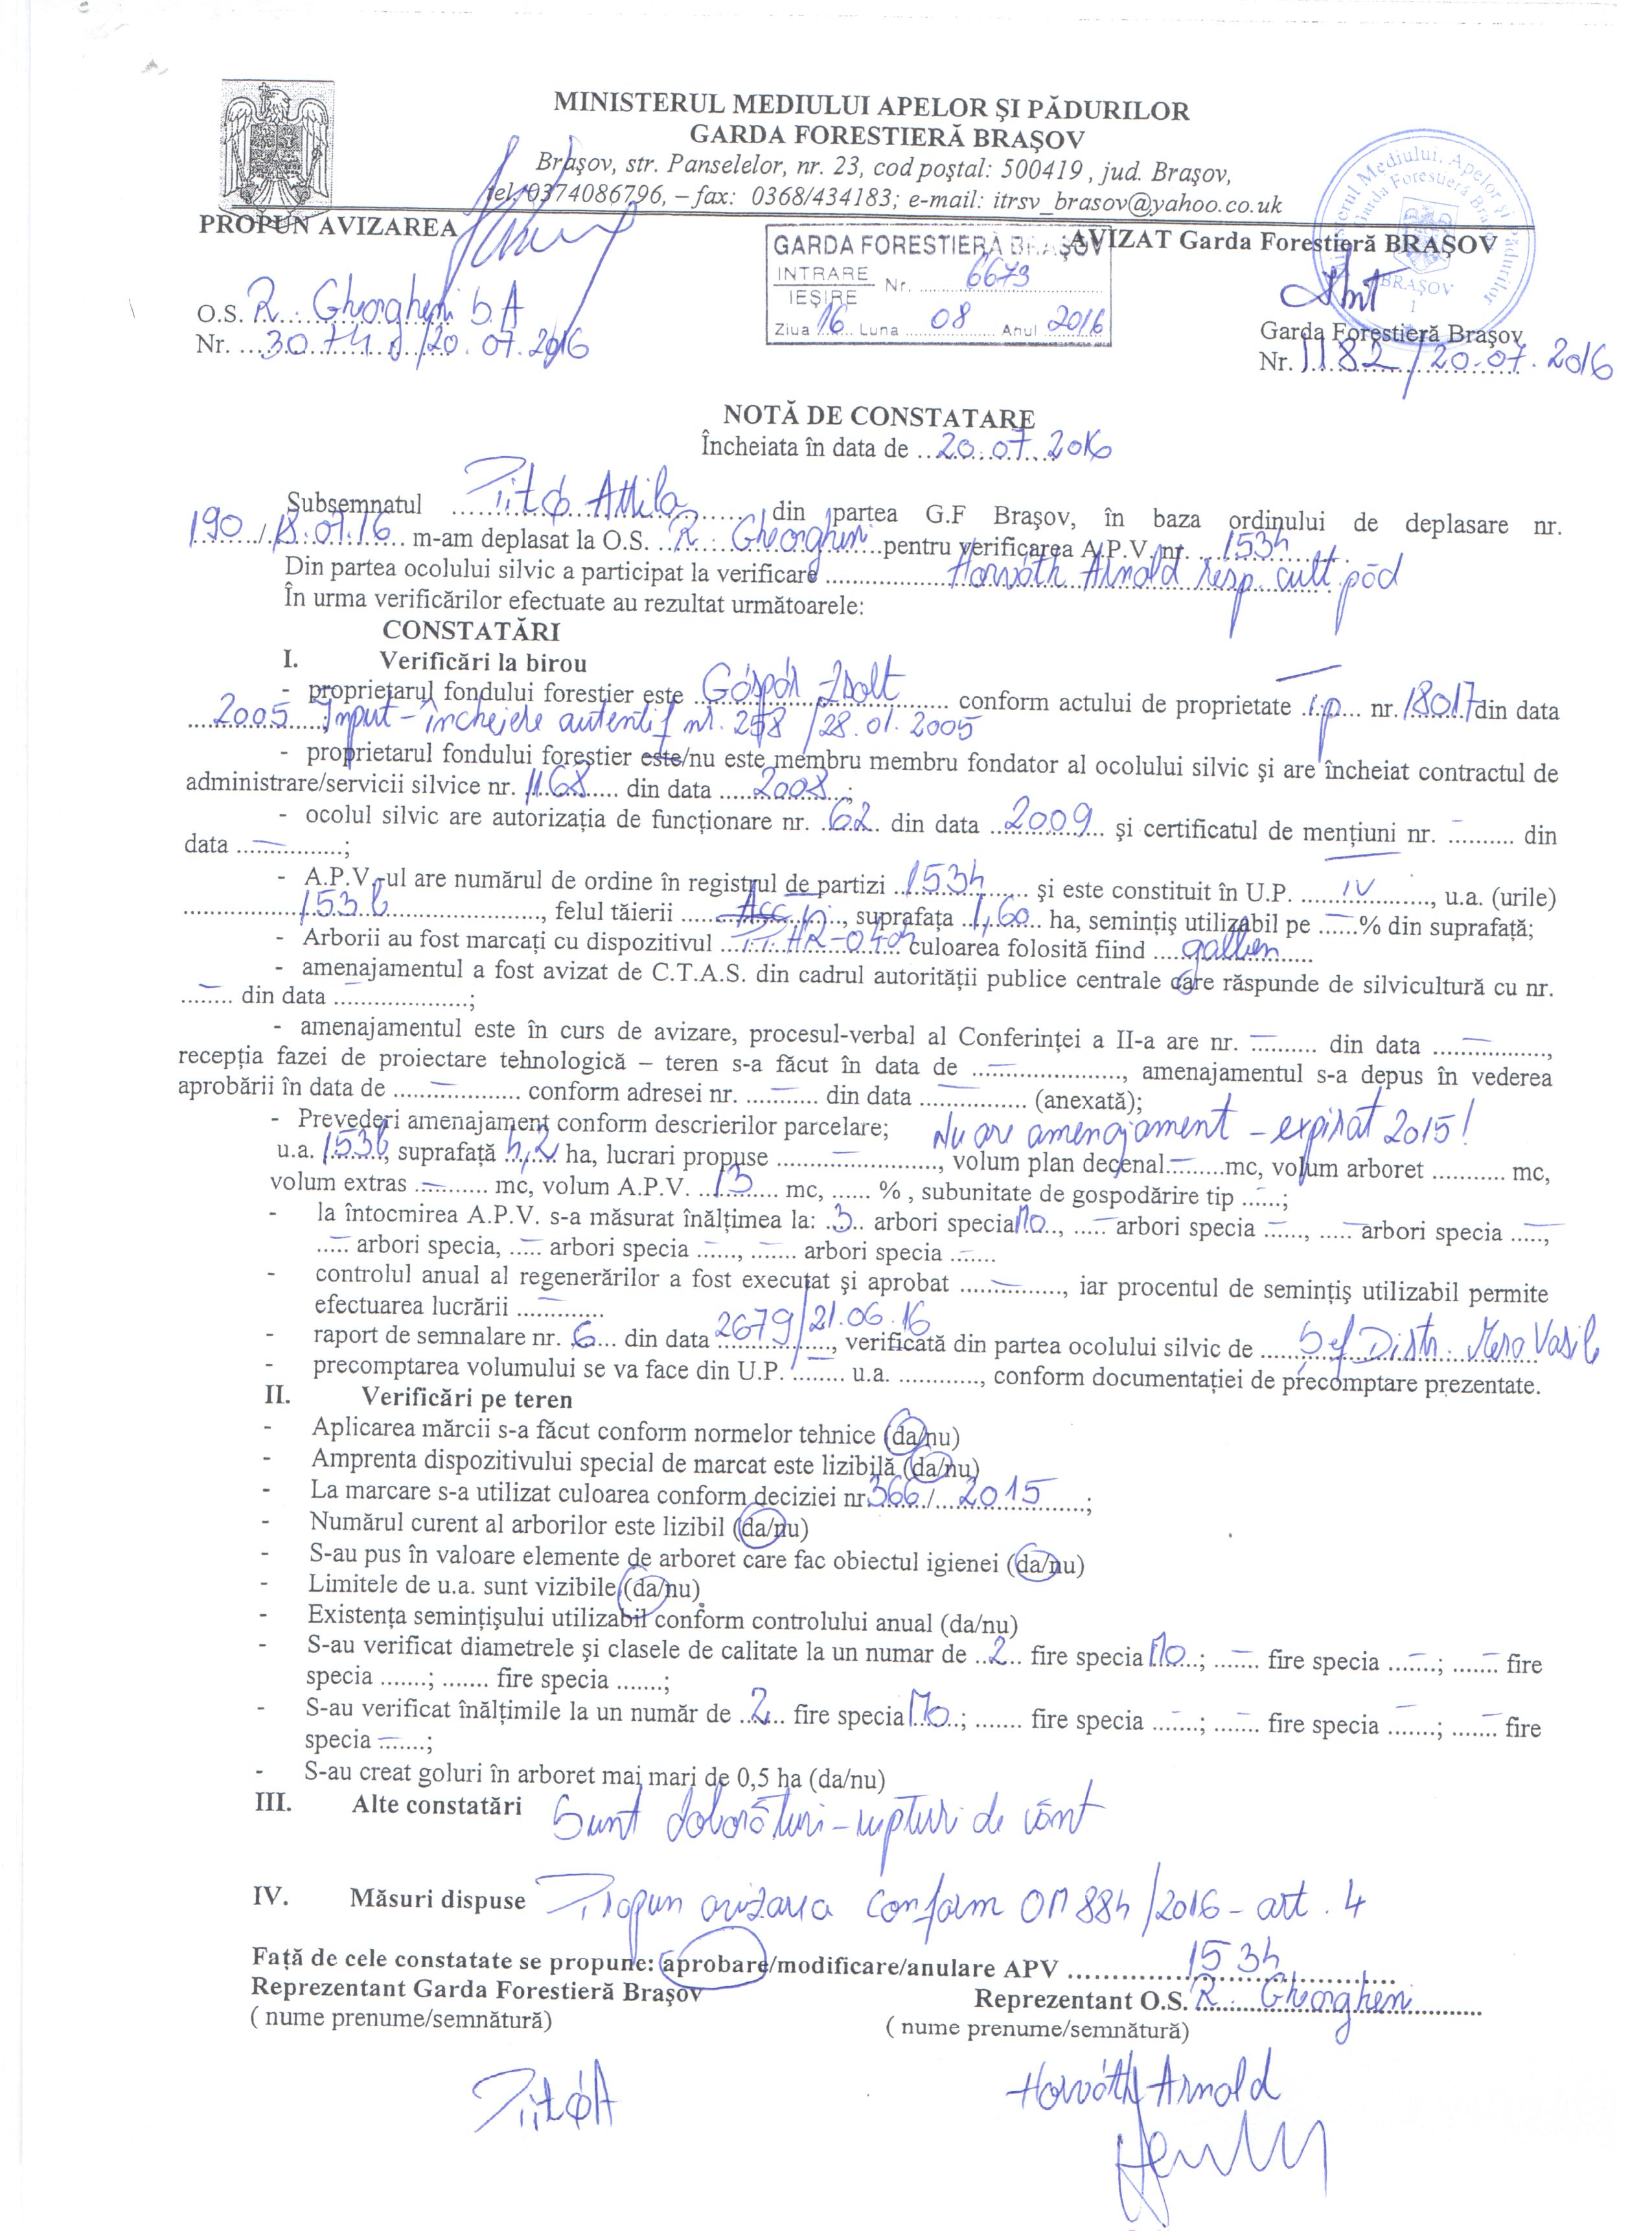 MINISTERUL MEDIULUI APELOR ŞI PĂDURILOR
GARDA FORESTIERĂ BRAŞOV
Braşov, str. Panselelor, nr. 23, cod poştal: 500419 , jud. Braşov,
tel. 0374086796, – fax: 0368/434183; e-mail: itrsv_brasov@yahoo.co.uk
PROPUN AVIZAREA
GARDA FORESTIERĂ BRAŞOV
INTRARE
IEŞIRE Nr. 6673
Ziua 16 Luna 08 Anul 2016
AVIZAT Garda Forestieră BRAŞOV
O.S. R. Gheorgheni S.A
Nr. 3074 /20.07.2016
Garda Forestieră Braşov
Nr. 1182/20.07.2016
NOTĂ DE CONSTATARE
Încheiata în data de 20.07.2016
Subsemnatul Attila din partea G.F Braşov, în baza ordinului de deplasare nr.
190 / 18.07.16 m-am deplasat la O.S. R. Gheorgheni pentru verificarea A.P.V. nr. 1534
Din partea ocolului silvic a participat la verificare Horváth Arnold resp. cult. păd
În urma verificărilor efectuate au rezultat următoarele:
CONSTATĂRI
I. Verificări la birou
- proprietarul fondului forestier este Gáspár Zsolt conform actului de proprietate t.p. nr. 18017 din data
2005 Input - încheiere autentif nr. 258 /28.01.2005
- proprietarul fondului forestier este/nu este membru membru fondator al ocolului silvic şi are încheiat contractul de
administrare/servicii silvice nr. 1168 din data 2008;
- ocolul silvic are autorizaţia de funcţionare nr. 62 din data 2009 şi certificatul de menţiuni nr. – din
data –;
- A.P.V.-ul are numărul de ordine în registrul de partizi 1534 şi este constituit în U.P. IV, u.a. (urile)
153 b, felul tăierii Acc, suprafaţa 1,60 ha, seminţiş utilizabil pe – % din suprafaţă;
- Arborii au fost marcaţi cu dispozitivul HR-04 culoarea folosită fiind galben
- amenajamentul a fost avizat de C.T.A.S. din cadrul autorităţii publice centrale care răspunde de silvicultură cu nr.
– din data –;
- amenajamentul este în curs de avizare, procesul-verbal al Conferinţei a II-a are nr. – din data –,
recepţia fazei de proiectare tehnologică – teren s-a făcut în data de –, amenajamentul s-a depus în vederea
aprobării în data de – conform adresei nr. – din data – (anexată);
- Prevederi amenajament conform descrierilor parcelare; Nu are amenajament - expirat 2015!
u.a. 153b, suprafaţă 5,2 ha, lucrari propuse –, volum plan decenal – mc, volum arboret .......... mc,
volum extras – mc, volum A.P.V. 13 mc, ...... % , subunitate de gospodărire tip –;
- la întocmirea A.P.V. s-a măsurat înălţimea la: 3 arbori specia Mo, – arbori specia –, – arbori specia –,
– arbori specia, – arbori specia –, – arbori specia –
- controlul anual al regenerărilor a fost executat şi aprobat –, iar procentul de seminţiş utilizabil permite
efectuarea lucrării –
- raport de semnalare nr. 6 din data 2679/21.06.16, verificată din partea ocolului silvic de Sef Distr. Vasile
- precomptarea volumului se va face din U.P. – u.a. –, conform documentaţiei de precomptare prezentate.
II. Verificări pe teren
- Aplicarea mărcii s-a făcut conform normelor tehnice (da/nu)
- Amprenta dispozitivului special de marcat este lizibilă (da/nu)
- La marcare s-a utilizat culoarea conform deciziei nr. 366 / 2015;
- Numărul curent al arborilor este lizibil (da/nu)
- S-au pus în valoare elemente de arboret care fac obiectul igienei (da/nu)
- Limitele de u.a. sunt vizibile (da/nu)
- Existenţa seminţişului utilizabil conform controlului anual (da/nu)
- S-au verificat diametrele şi clasele de calitate la un numar de 2 fire specia Mo; – fire specia –; – fire
specia .......; ....... fire specia .......;
- S-au verificat înălţimile la un număr de 2 fire specia Mo; ....... fire specia –; – fire specia –; – fire
specia –;
- S-au creat goluri în arboret mai mari de 0,5 ha (da/nu)
III. Alte constatări Sunt doborături - rupturi de vânt
IV. Măsuri dispuse Propun avizarea conform OM 884/2016 - art. 4
Faţă de cele constatate se propune: aprobare/modificare/anulare APV 1534
Reprezentant Garda Forestieră Braşov
Reprezentant O.S. R. Gheorgheni
( nume prenume/semnătură)
( nume prenume/semnătură)
Horváth Arnold